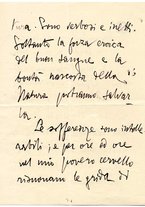 Sono verbosi e inetti.
Soltanto la forza eroica
del buon sangue e la
bontà nascosta della
Natura potranno salvar
la.
Le sofferenze sono
ed ore
nel mio povero cervello
risuonano le grida di